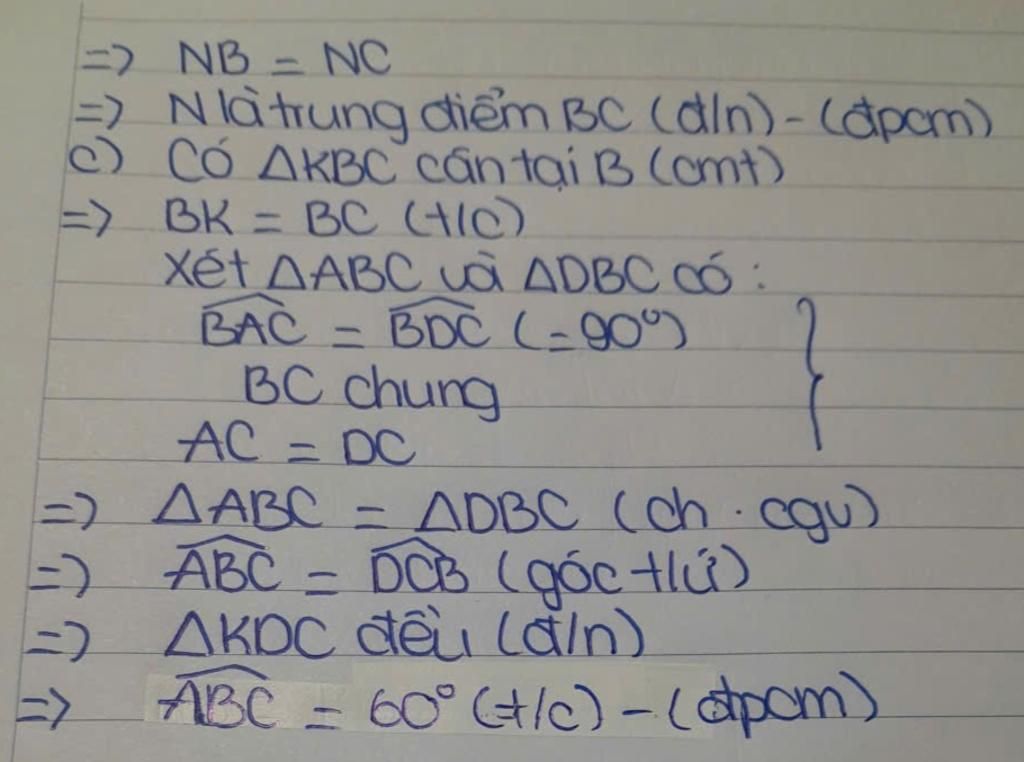 => NB = NC
=> N là trung điểm BC (đ/n) - (đpcm)
c) Có ΔKBC cân tại B (cmt)
=> BK = BC (t/c)
Xét ΔABC và ΔDBC có :
\widehat{BAC} = \widehat{BDC} (=90°)
BC chung
AC = DC
=> ΔABC = ΔDBC (ch . cgv)
=> \widehat{ABC} = \widehat{DCB} (góc t/ứ)
=> ΔKDC đều (đ/n)
=> \widehat{ABC} = 60° (t/c) - (đpcm)